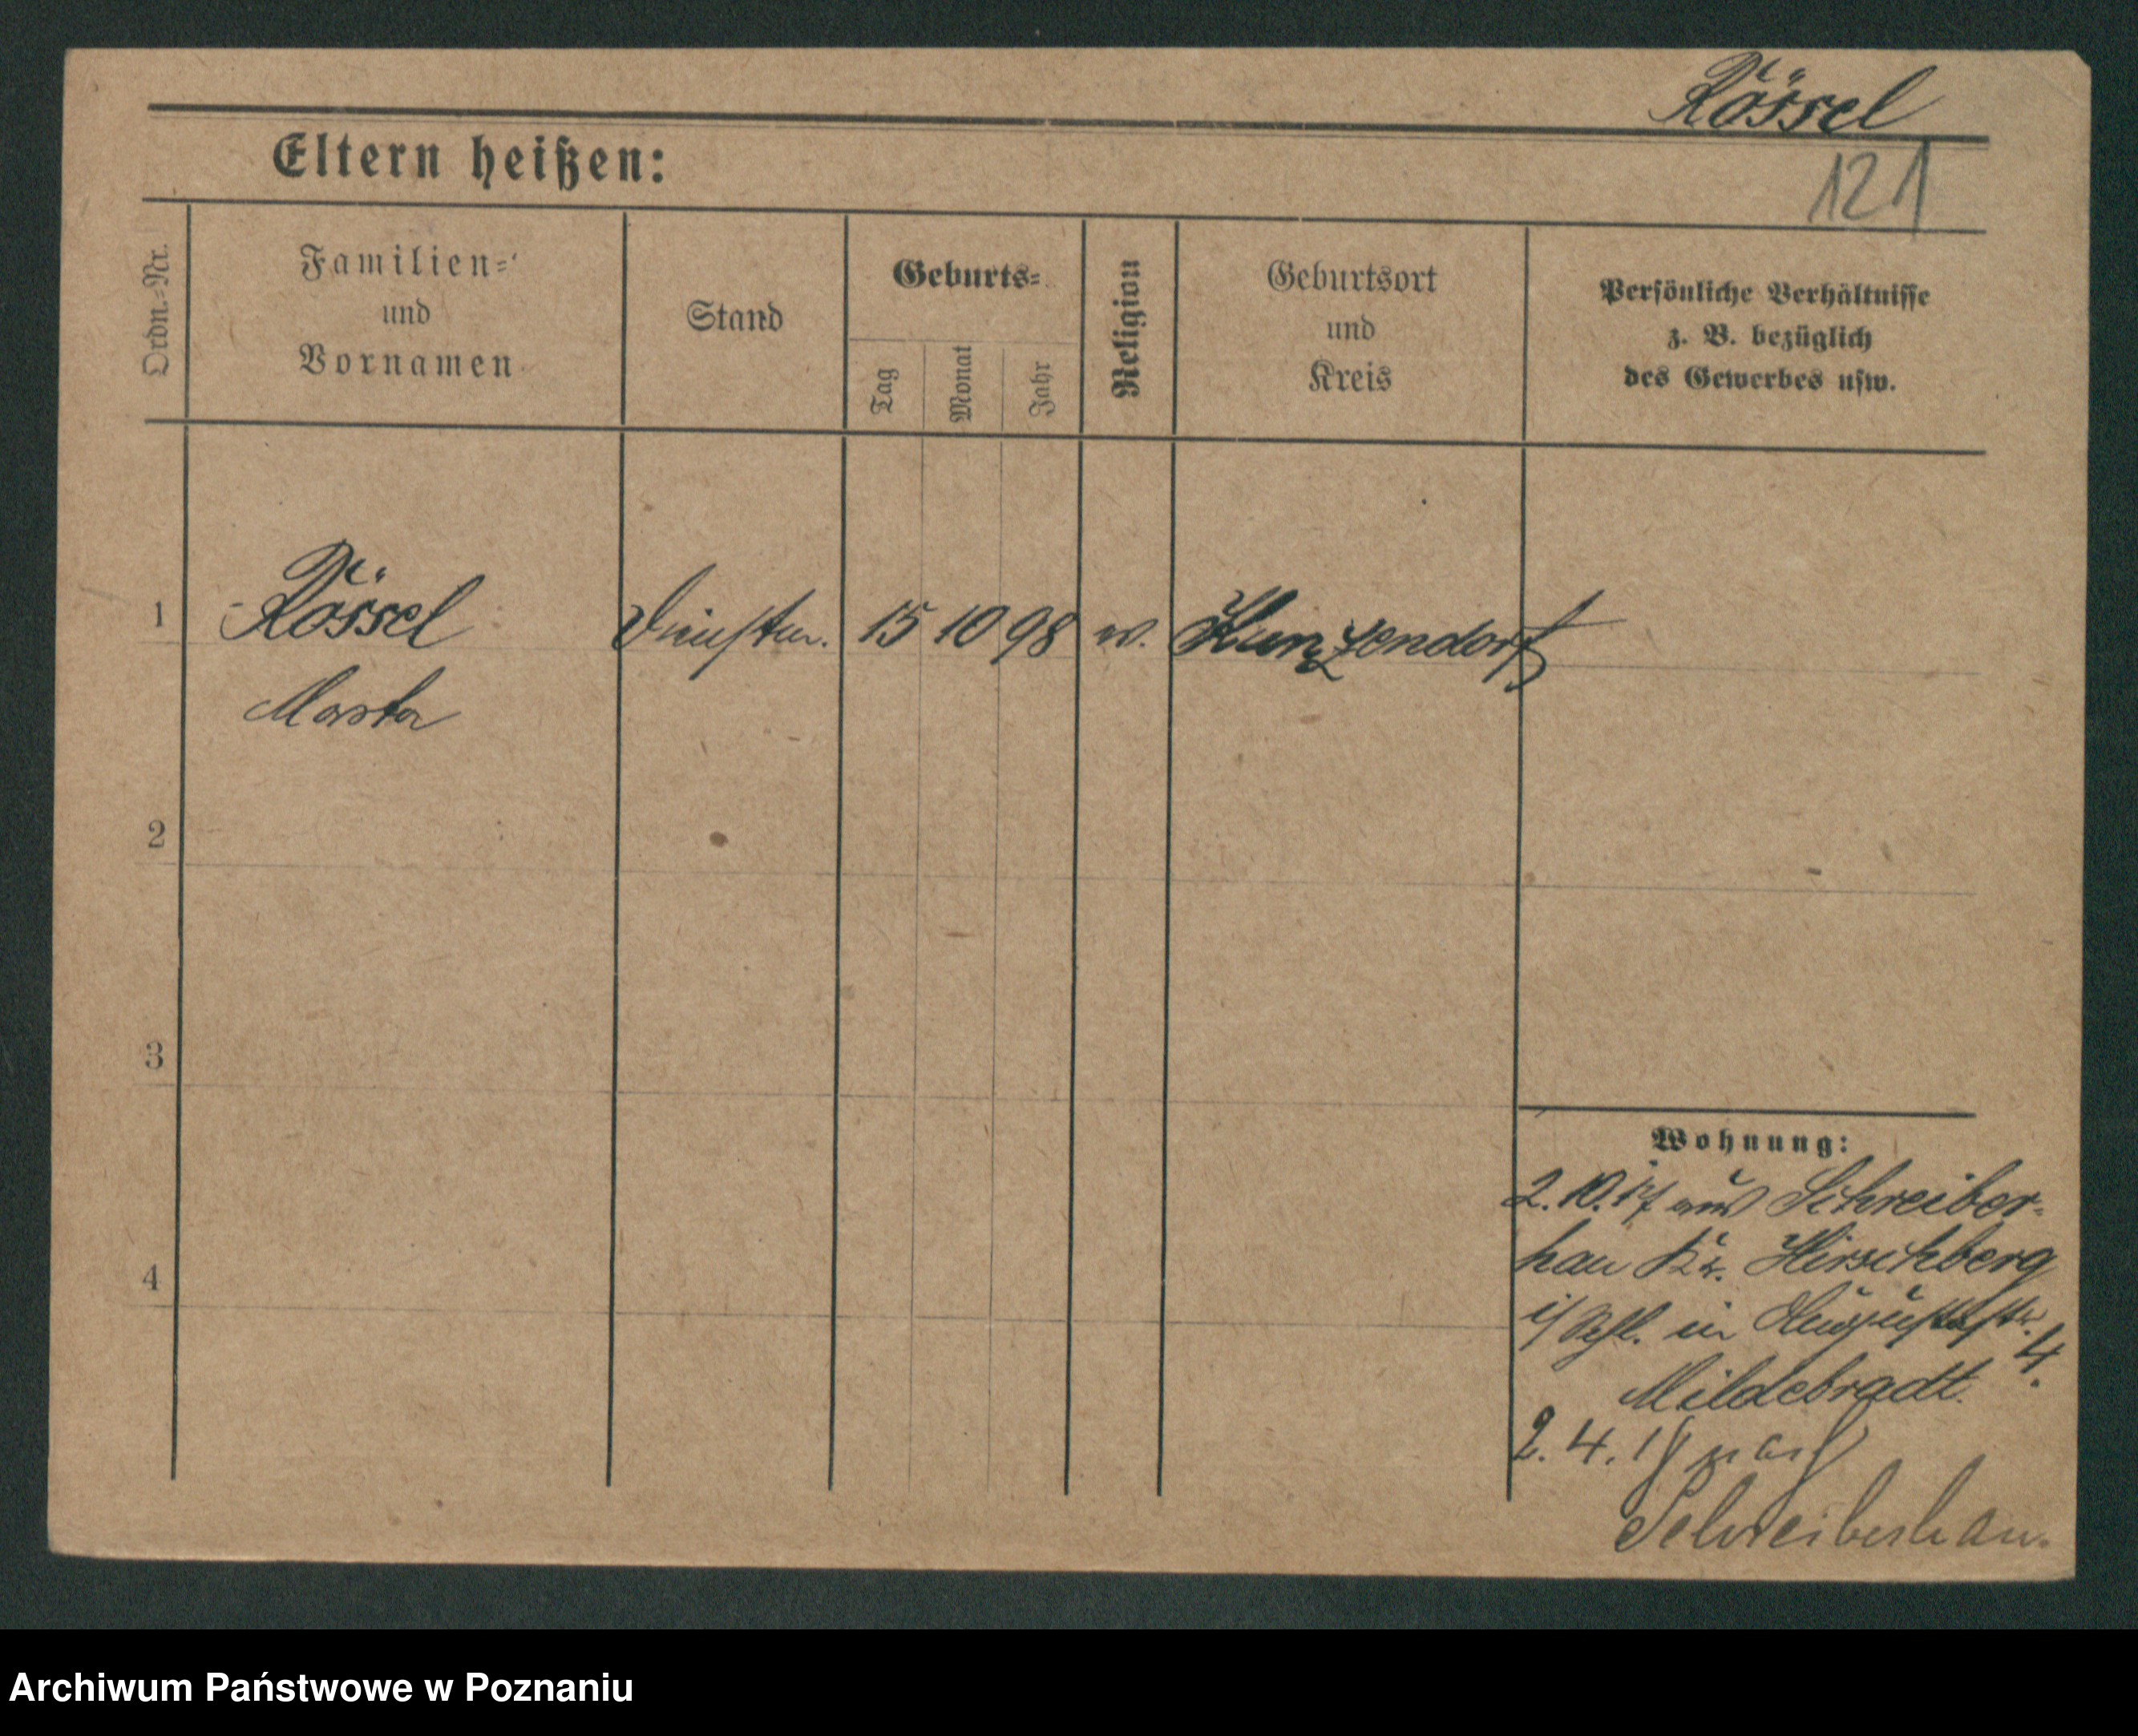 Rössel
121
Eltern heißen:
Ordn.-Nr.
Familien-
und
Vornamen
Stand
Geburts-
Tag
Monat
Jahr
Religion
Geburtsort
und
Kreis
Persönliche Verhältnisse
z. B. bezüglich
des Gewerbes usw.
1 Rössel 15 10 98 Kunzendorf
Marta
2
3
4
Wohnung:
2.10.17 aus Schreiber-
hau Kr. Hirschberg
i/Schl. in Auguststr. 4.
Mildebradt.
2.4.18 nach
Schreiberhau.
Archiwum Państwowe w Poznaniu